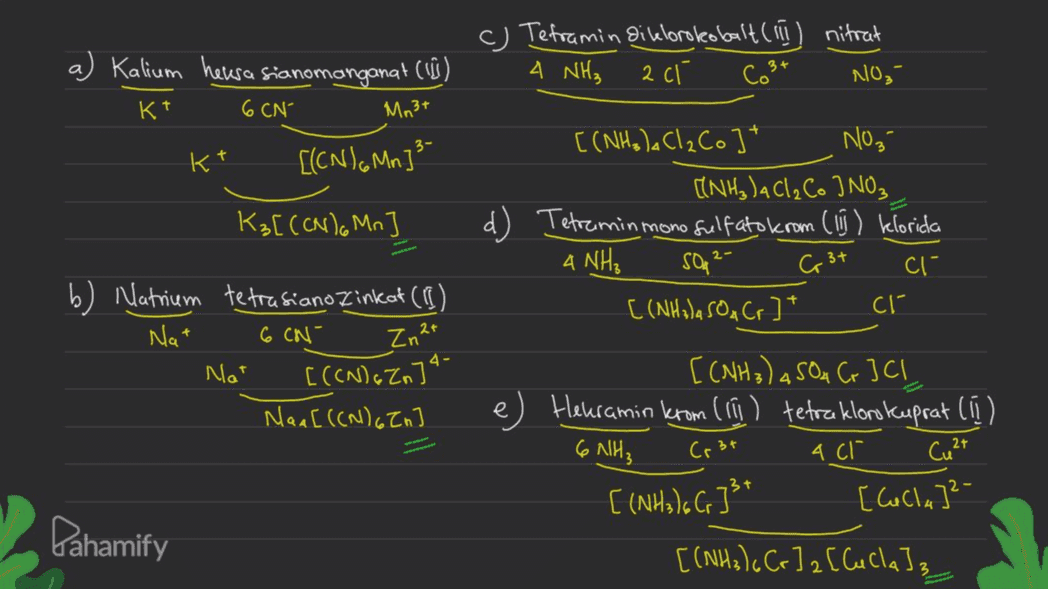 a) Kalium heksa sianomanganat (III)
K⁺ 6 CN⁻ Mn³⁺
K⁺ [(CN)₆Mn]³⁻
K₃[(CN)₆Mn]
b) Natrium tetrasianozinkat (II)
Na⁺ 6 CN⁻ Zn²⁺
Na⁺ [(CN)₆Zn]⁴⁻
Na₄[(CN)₆Zn]
c) Tetramin diklorokobalt (III) nitrat
4 NH₃ 2 Cl⁻ Co³⁺ NO₃⁻
[(NH₃)₄Cl₂Co]⁺ NO₃⁻
[(NH₃)₄Cl₂Co]NO₃
d) Tetraminmonosulfatokrom (III) klorida
4 NH₃ SO₄²⁻ Cr³⁺ Cl⁻
[(NH₃)₄SO₄Cr]⁺ Cl⁻
[(NH₃)₄SO₄Cr]Cl
e) Heksamin krom (III) tetraklorokuprat (II)
6 NH₃ Cr³⁺ 4 Cl⁻ Cu²⁺
[(NH₃)₆Cr]³⁺ [CuCl₄]²⁻
[(NH₃)₆Cr]₂[CuCl₄]₃
Pahamify